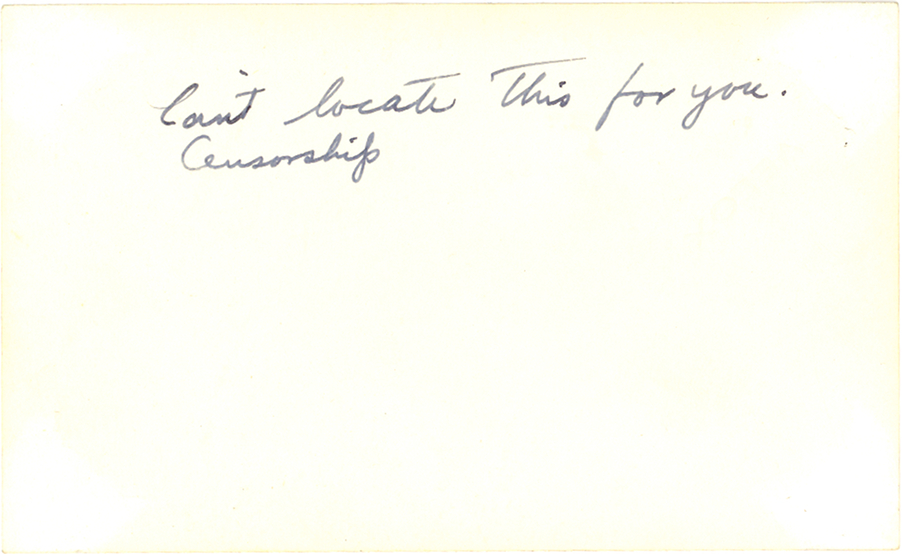 Can't locate this for you.
Censorship